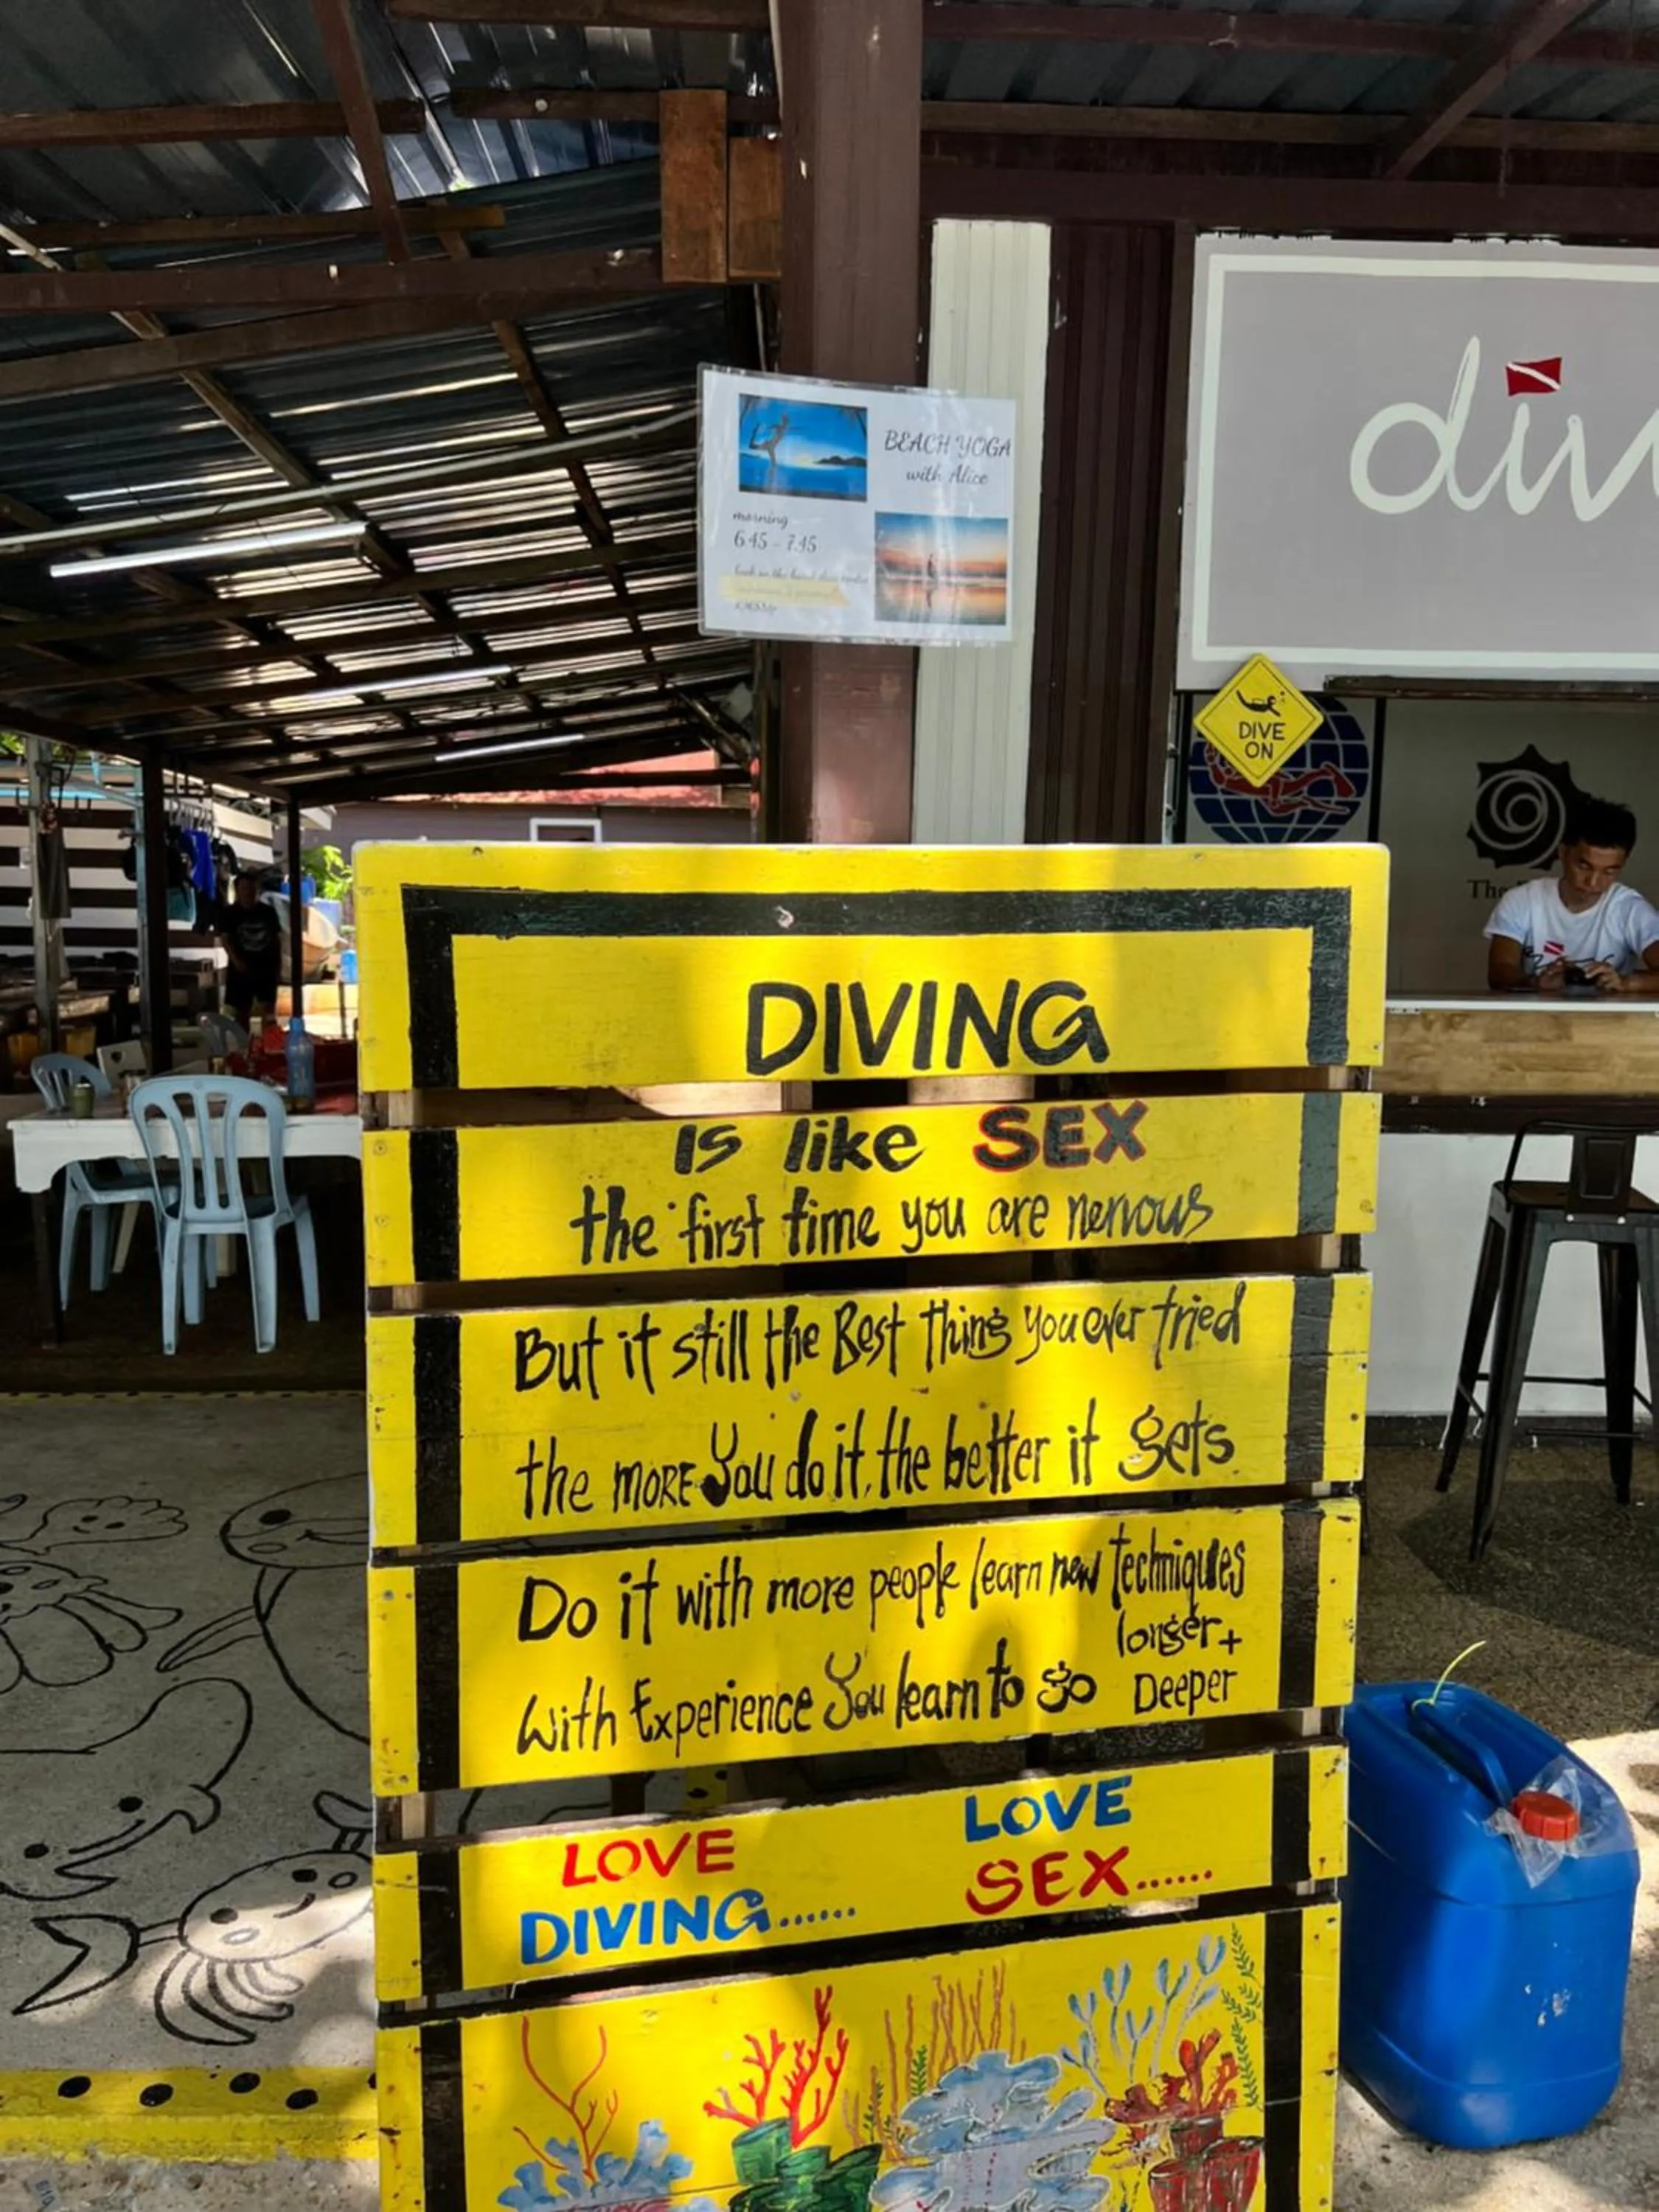 BEACH YOGA
with Alice
morning
6.45 - 7.45
div
DIVE
ON
The
DIVING
IS like SEX
the first time you are nervous
But it still the Best thing you ever tried
the MORE You do it, the better it gets
Do it with more people learn new Techniques
longer +
With Experience You learn to go Deeper
LOVE
DIVING......
LOVE
SEX......